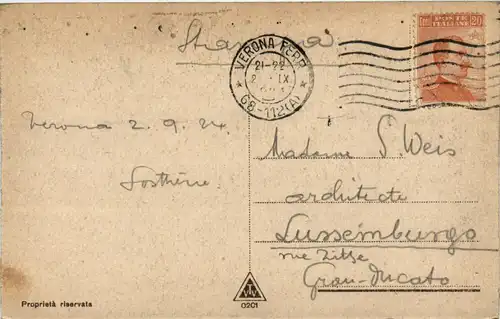 Straniera
VERONA FERR.
21-22
2 IX
68-112(A)
POSTE ITALIANE
20
Verona 2.9.24.
Sosthène
Madame S. Weis
architecte
Lussemburgo
rue Zithe
Gran-Ducato
0201
Proprietà riservata